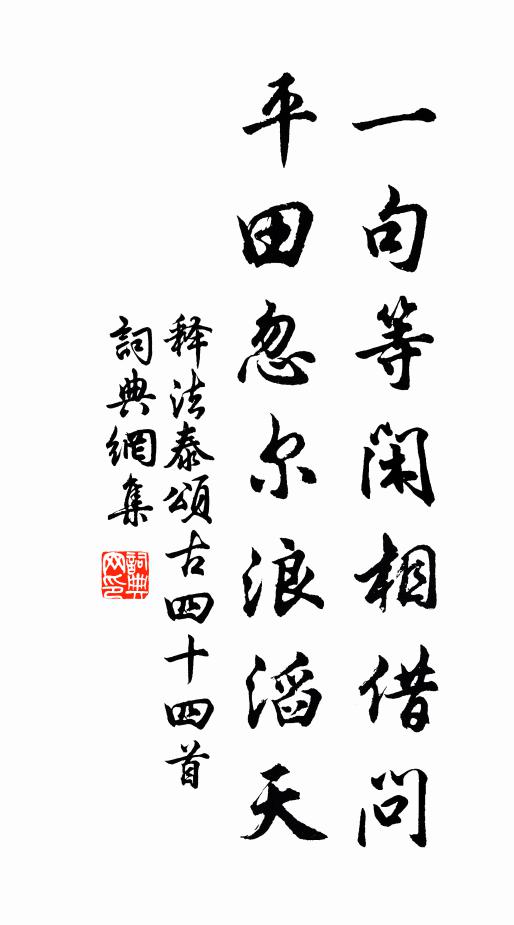 一句等閑相借問
平田忽尔浪滔天
释法泰頌古四十四首
詞典網集
詞典網印